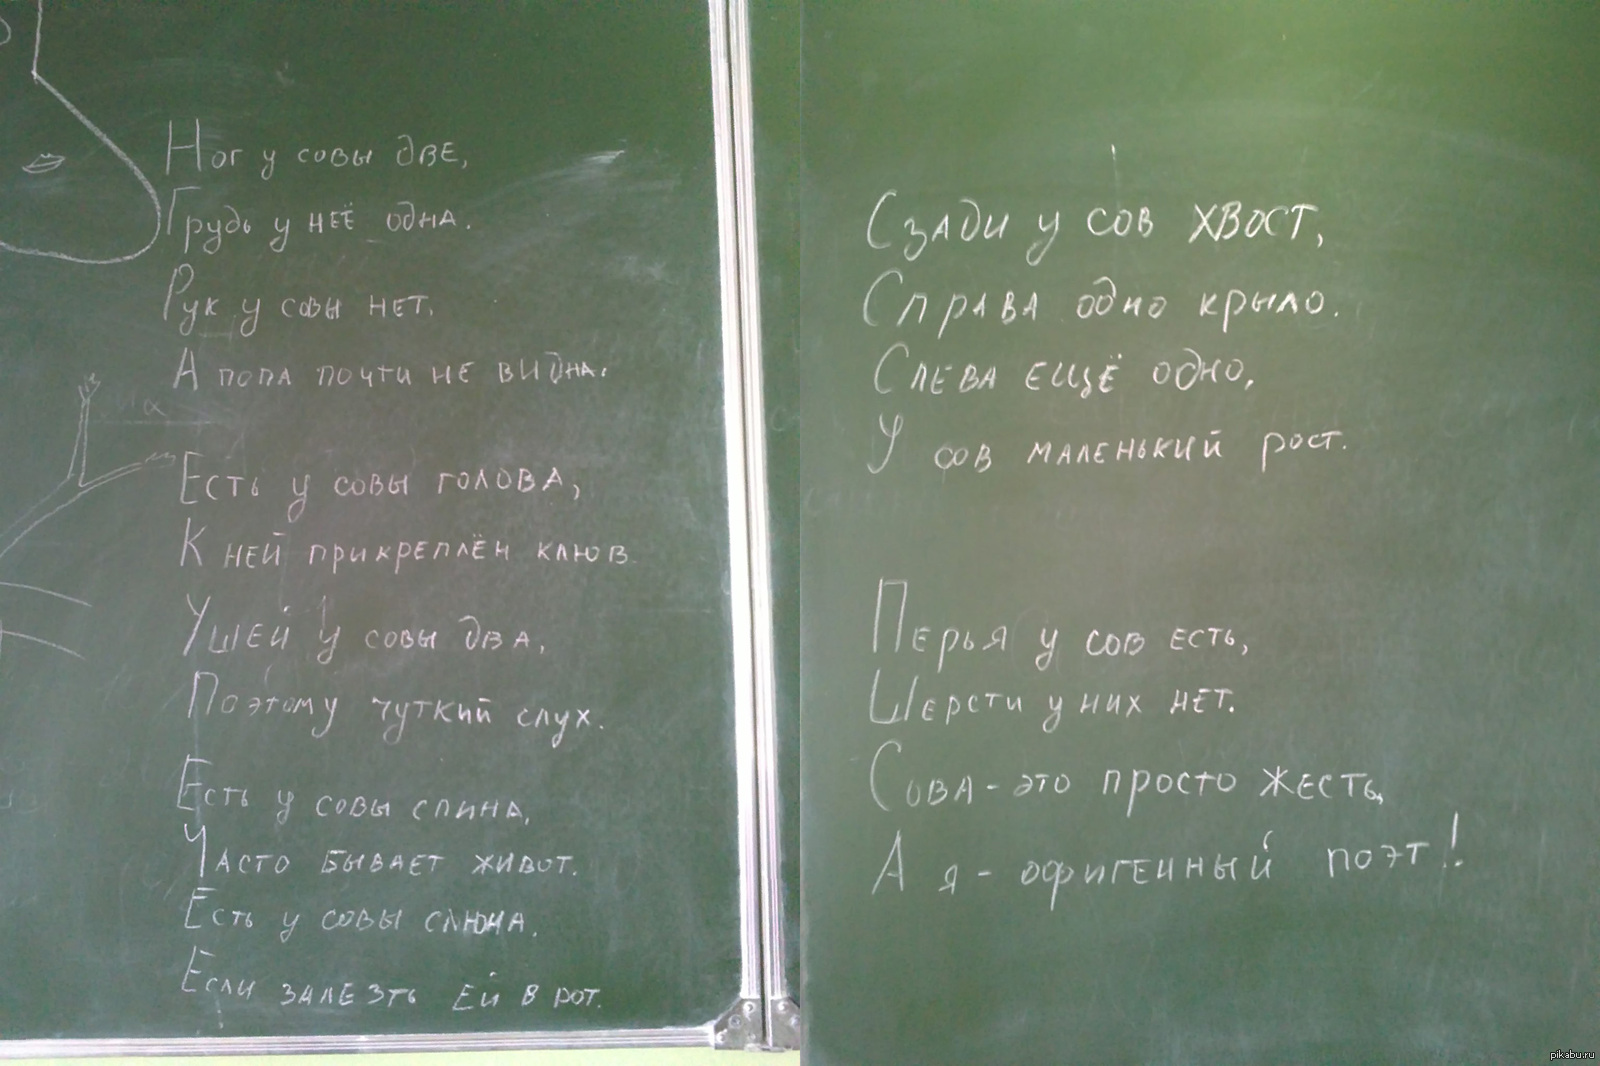 Ног у совы две,
Грудь у неё одна.
Рук у совы нет,
А попа почти не видна.
Есть у совы голова,
К ней прикреплён клюв
Ушей у совы два,
Поэтому чуткий слух.
Есть у совы спина,
Часто бывает живот.
Есть у совы слюна.
Если залезть ей в рот.
Сзади у сов хвост,
Справа одно крыло.
Слева ещё одно,
У сов маленький рост.
Перья у сов есть,
Шерсти у них нет.
Сова - это просто жесть,
А я - офигенный поэт!
pikabu.ru